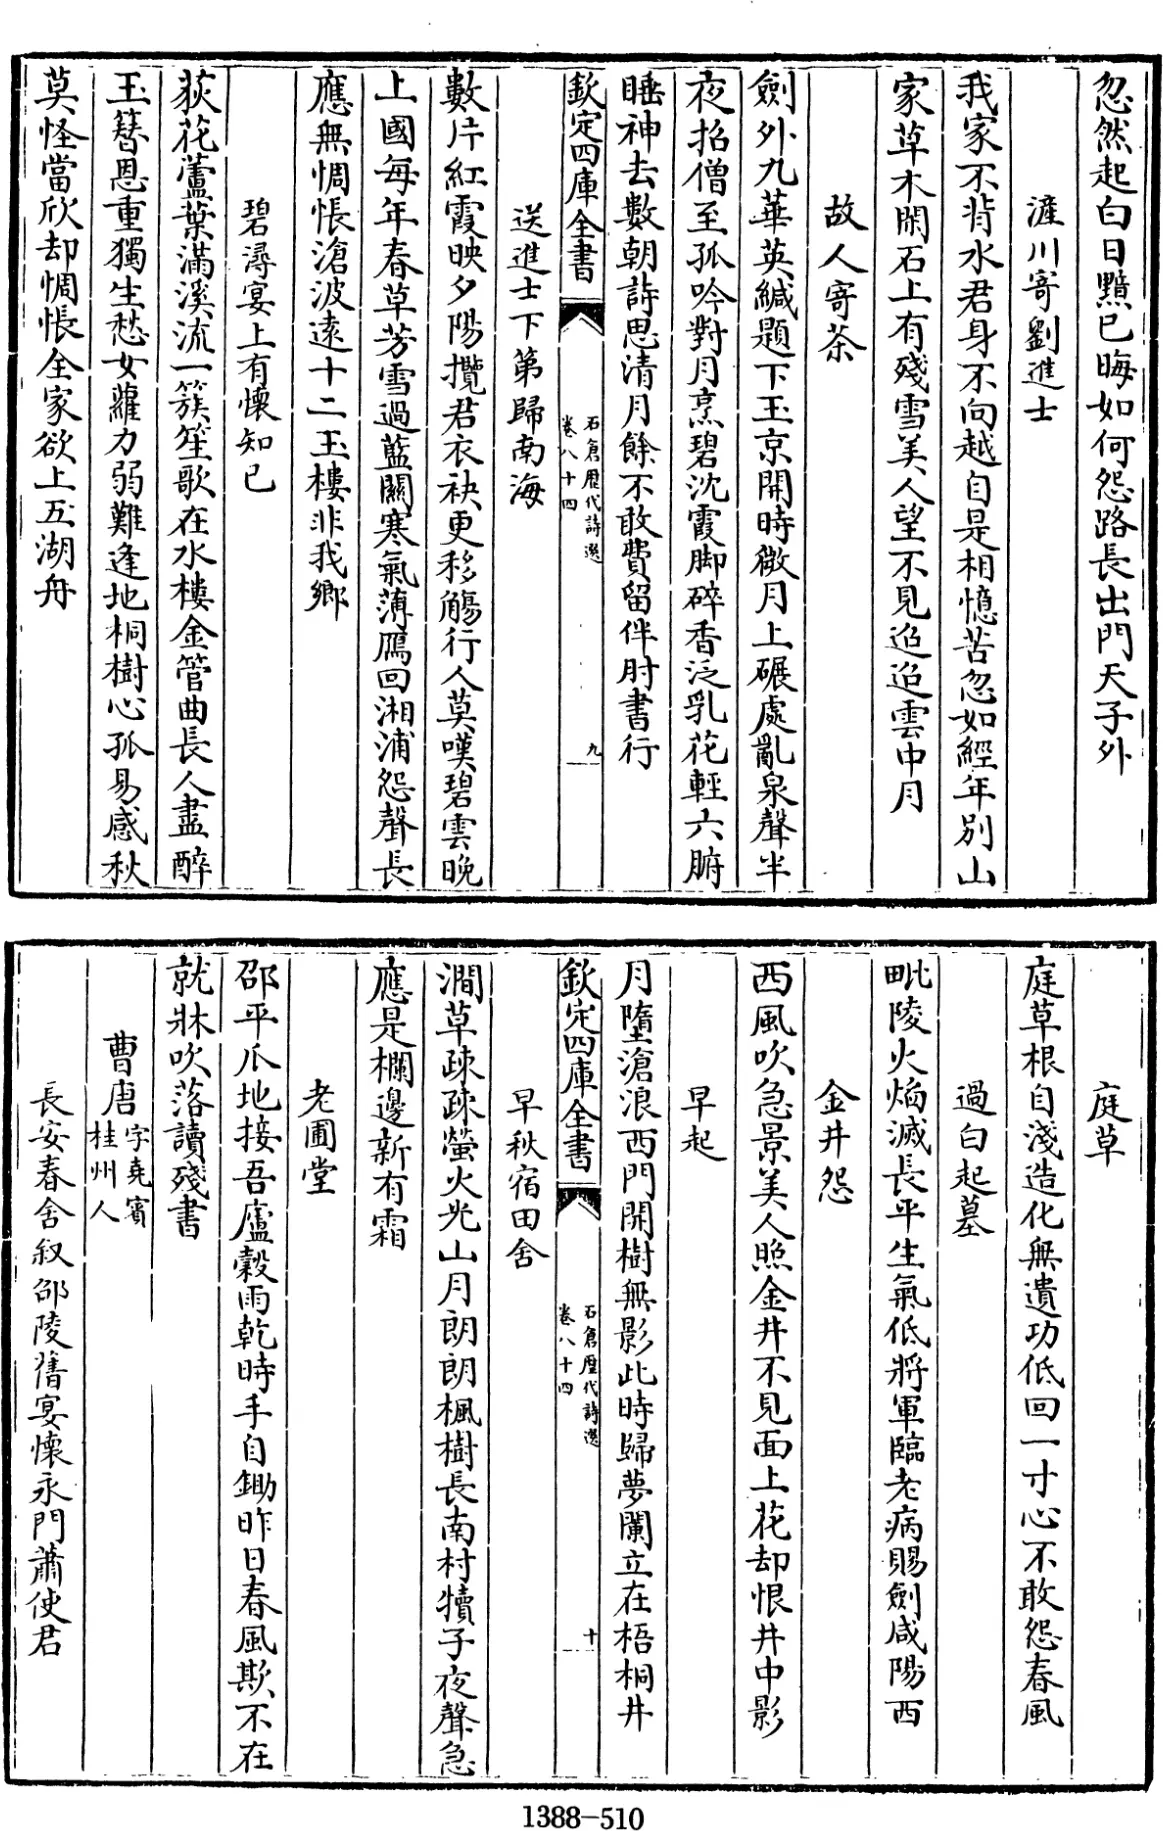 忽然起白日黯已晦如何怨路長出門天子外
滻川寄劉進士
我家不背水君身不向越自是相憶苦忽如經年別山
家草木閑石上有殘雪美人望不見迢迢雲中月
故人寄茶
劍外九華英緘題下玉京開時微月上碾處亂泉聲半
夜招僧至孤吟對月烹碧沈霞脚碎香泛乳花輕六腑
睡神去數朝詩思清月餘不敢費留伴肘書行
欽定四庫全書
石倉歷代詩選
卷八十四
九
送進士下第歸南海
數片紅霞映夕陽攬君衣袂更移觴行人莫嘆碧雲晚
上國每年春草芳雪過藍關寒氣薄鴈回湘浦怨聲長
應無惆悵滄波遠十二玉樓非我鄉
碧潯宴上有懷知已
荻花蘆葉滿溪流一簇笙歌在水樓金管曲長人盡醉
玉簪恩重獨生愁女蘿力弱難逢地桐樹心孤易感秋
莫怪當欣却惆悵全家欲上五湖舟
庭草
庭草根自淺造化無遺功低回一寸心不敢怨春風
過白起墓
毗陵火焰滅長平生氣低將軍臨老病賜劍咸陽西
金井怨
西風吹急景美人照金井不見面上花却恨井中影
早起
月墮滄浪西門開樹無影此時歸夢闌立在梧桐井
欽定四庫全書
石倉歷代詩選
卷八十四
十
早秋宿田舍
澗草疎疎螢火光山月朗朗楓樹長南村犢子夜聲急
應是欄邊新有霜
老圃堂
邵平爪地接吾廬穀雨乾時手自鋤昨日春風欺不在
就牀吹落讀殘書
曹唐 字堯賓
桂州人
長安春舍叙邵陵舊宴懷永門蕭使君
1388-510